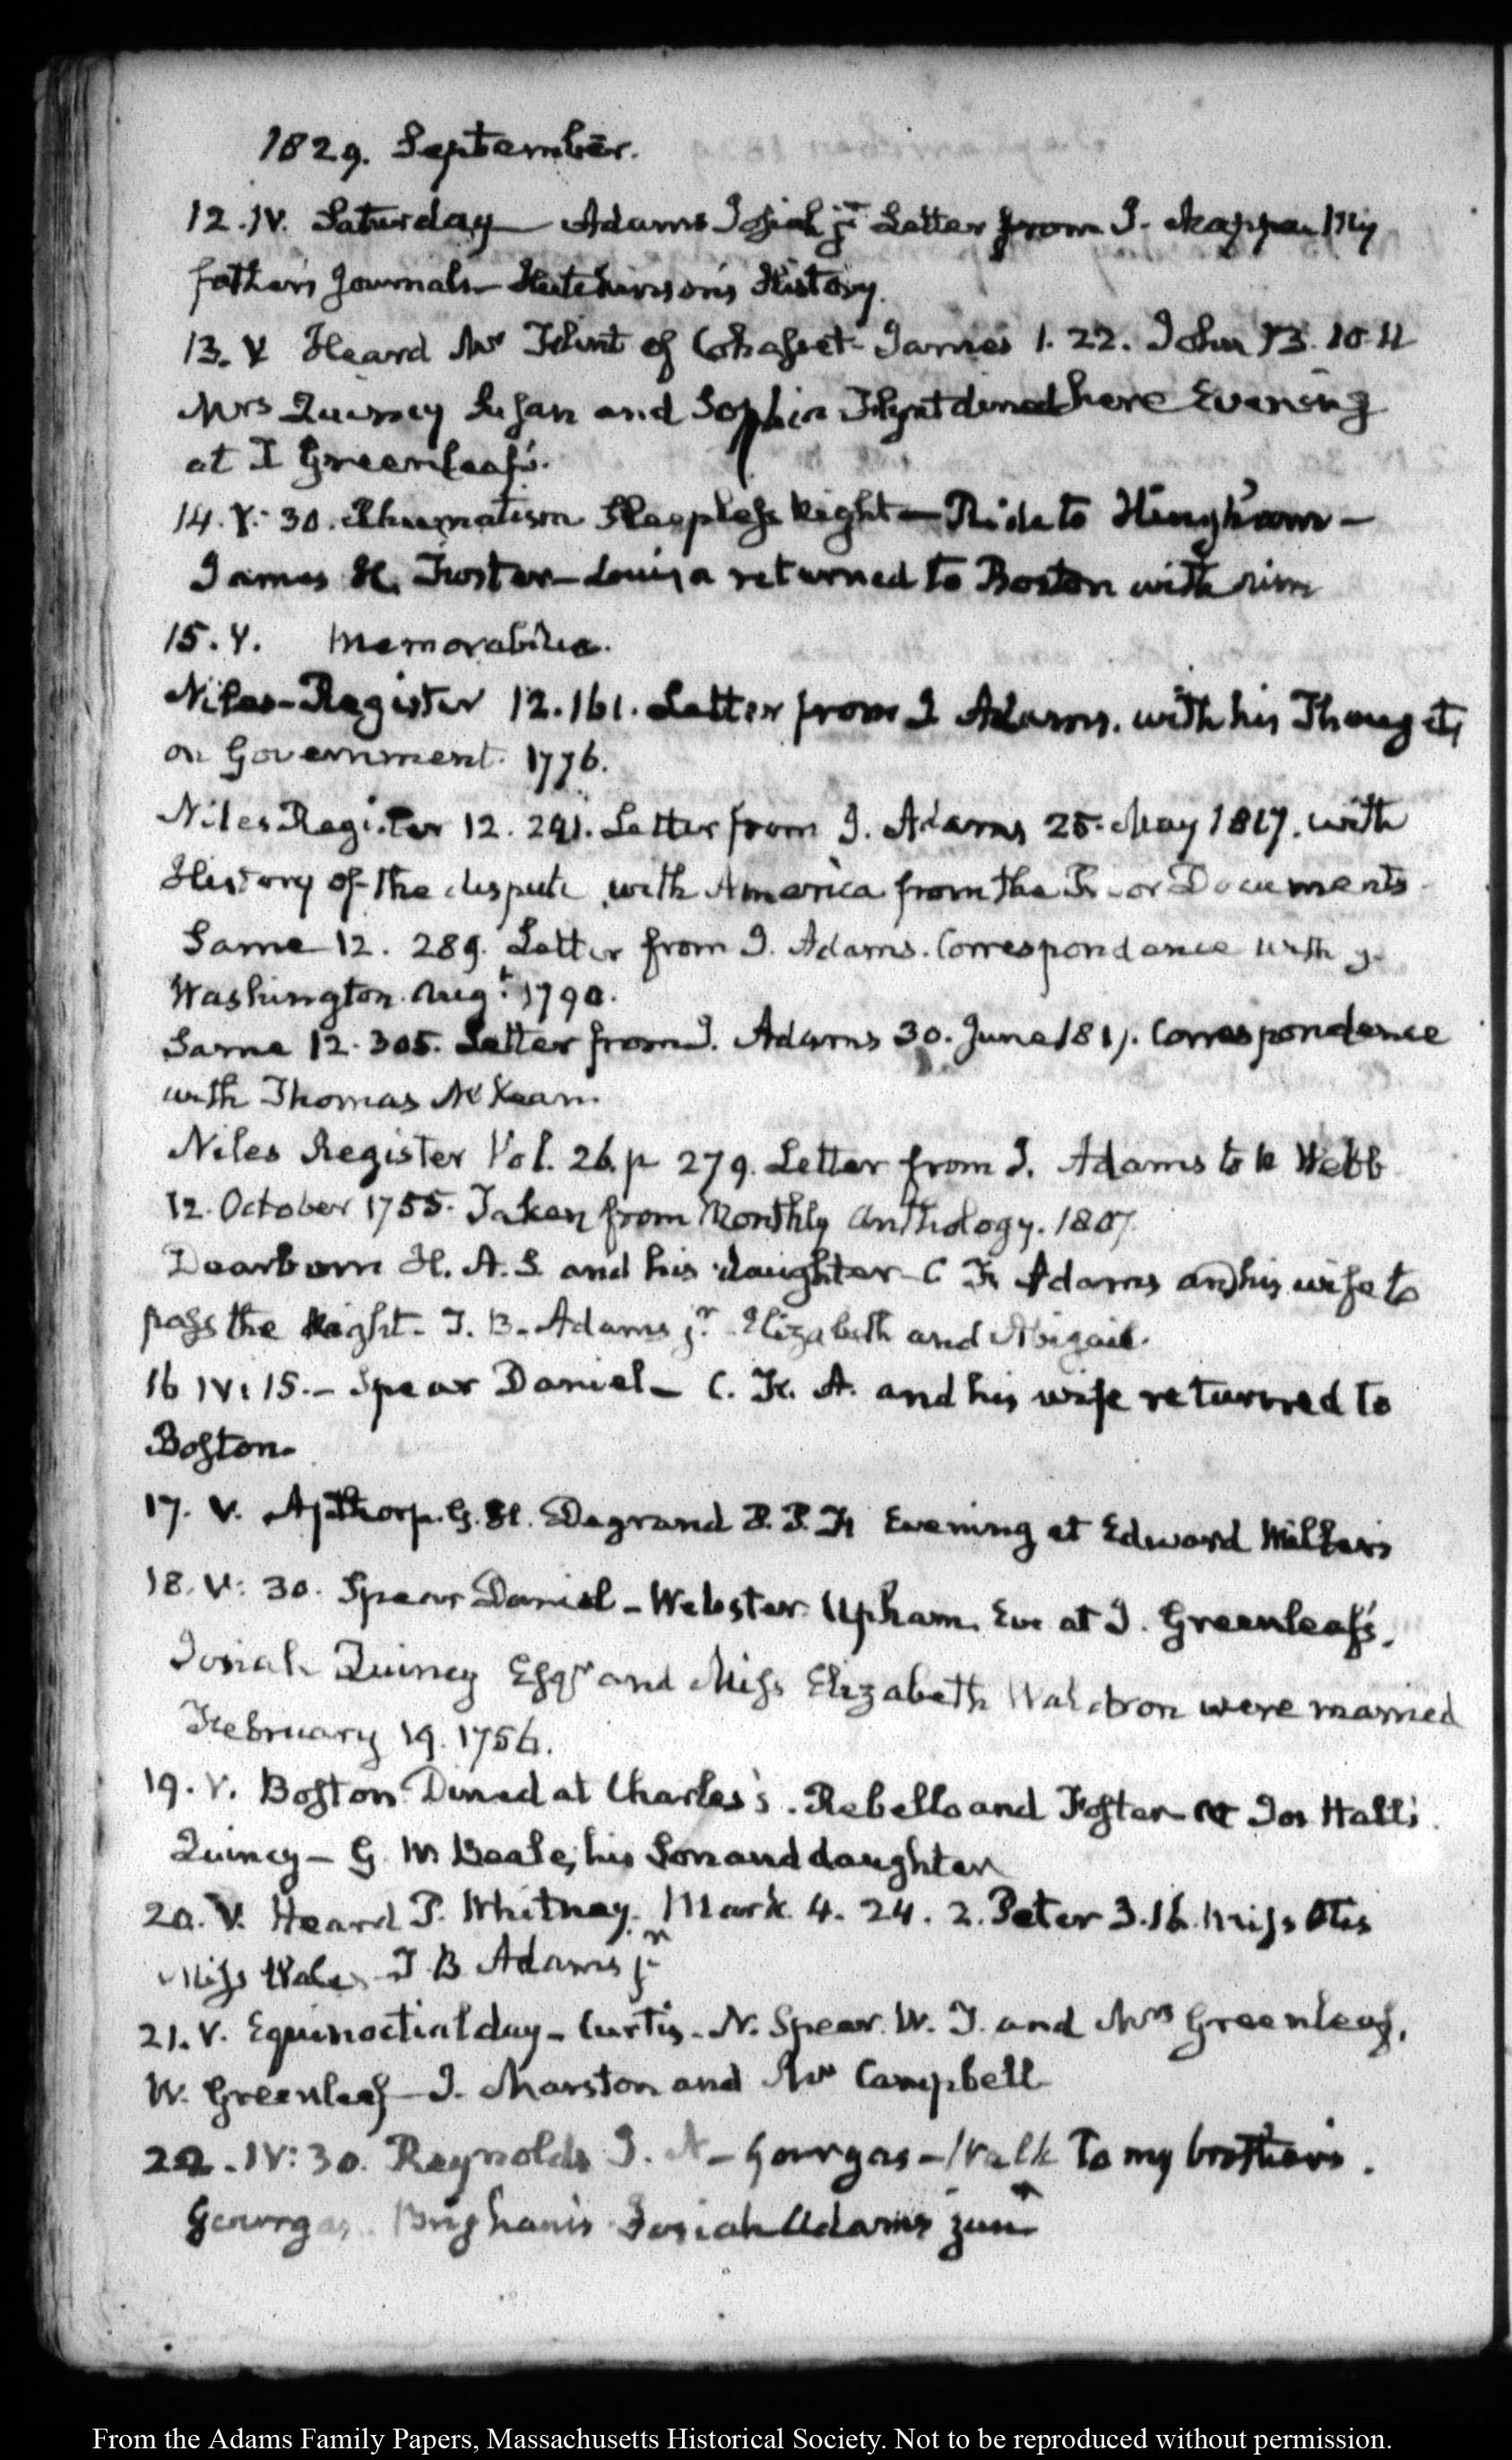 1829. September.
12. IV. Saturday — Adams Josiah jr. Letter from J. My
father's Journals — Hutchinson's History.
13. V Heard Mr Flint of Cohasset — James 1. 22. John 13. 10.11
Mrs Quincy Susan and Sophia dined here Evening
at T Greenleaf's.
14. V: 30. Rhumatism Sleepless Night — Ride to Hingham —
James H. Foster — Louisa returned to Boston with him
15. V. Memorabilia.
Niles — Register 12. 161. Letter from J Adams. with his Thoughts
on Government. 1776.
Niles Register 12. 241. Letter from J. Adams 25. May 1817. with
History of the dispute with America from the Prior Documents
Same 12. 289. Letter from J. Adams. Correspondence with G.
Washington. Augt. 1790.
Same 12. 305. Letter from J. Adams 30. June 1817. Correspondence
with Thomas McKean.
Niles Register Vol. 26. p 279. Letter from J. Adams to N Webb
12. October 1755. Taken from Monthly Anthology. 1807.
Dearborn H. A. S. and his daughter — C F. Adams and his wife to
pass the Night — T. B. Adams jr. — Elizabeth and Abigail.
16 IV: 15. — Spear Daniel — C. F. A. and his wife returned to
Boston.
17. V. Apthorp. G. H. Degrand P. P. F. Evening at Edward Miller's
18. V: 30. Spear Daniel — Webster. Upham. Eve at T. Greenleaf's.
Josiah Quincy Esqr and Miss Elizabeth Waldron were married
February 19. 1756.
19. V. Boston Dined at Charles's. Rebello and Foster at Jos Hall's
Quincy — G. W. Beale, his Son and daughter
20. V. Heard P. Whitney. Mark. 4. 24. 2. Peter 3. 16. Miss Otis
Miss Wales T B Adams jr
21. V. Equinoctial day — Curtis — N. Spear. W. T. and Mrs Greenleaf,
W. Greenleaf — J. Marston and Mr Campbell
22. IV: 30. Reynolds J. N — Gourgas — Walk to my brother's.
Gourgas. Brigham's Josiah Adams junr
From the Adams Family Papers, Massachusetts Historical Society. Not to be reproduced without permission.